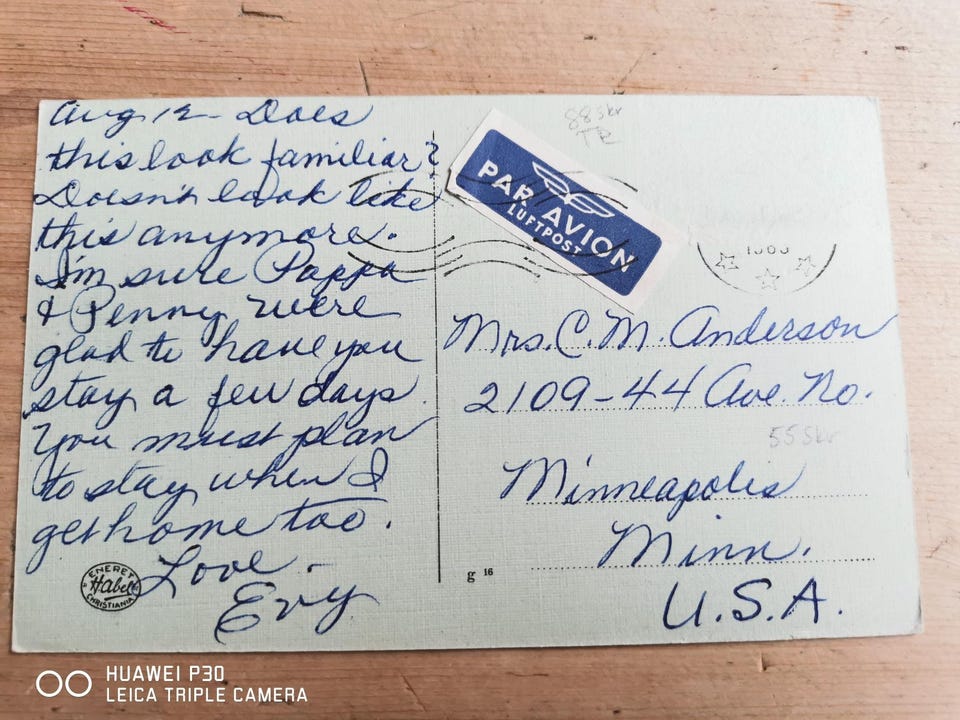 Aug 12 - Does
this look familiar?
Doesn't look like
this anymore.
I'm sure Pappa
& Penny were
glad to have you
stay a few days.
You must plan
to stay when I
get home too.
Love -
Evy
ENERET
Habel
CHRISTIANIA
88 skr
TR
PAR AVION
LUFTPOST
Mrs. C. M. Anderson
2109-44 Ave. No.
55 Skr
Minneapolis
Minn.
U.S.A.
g 16
HUAWEI P30
LEICA TRIPLE CAMERA